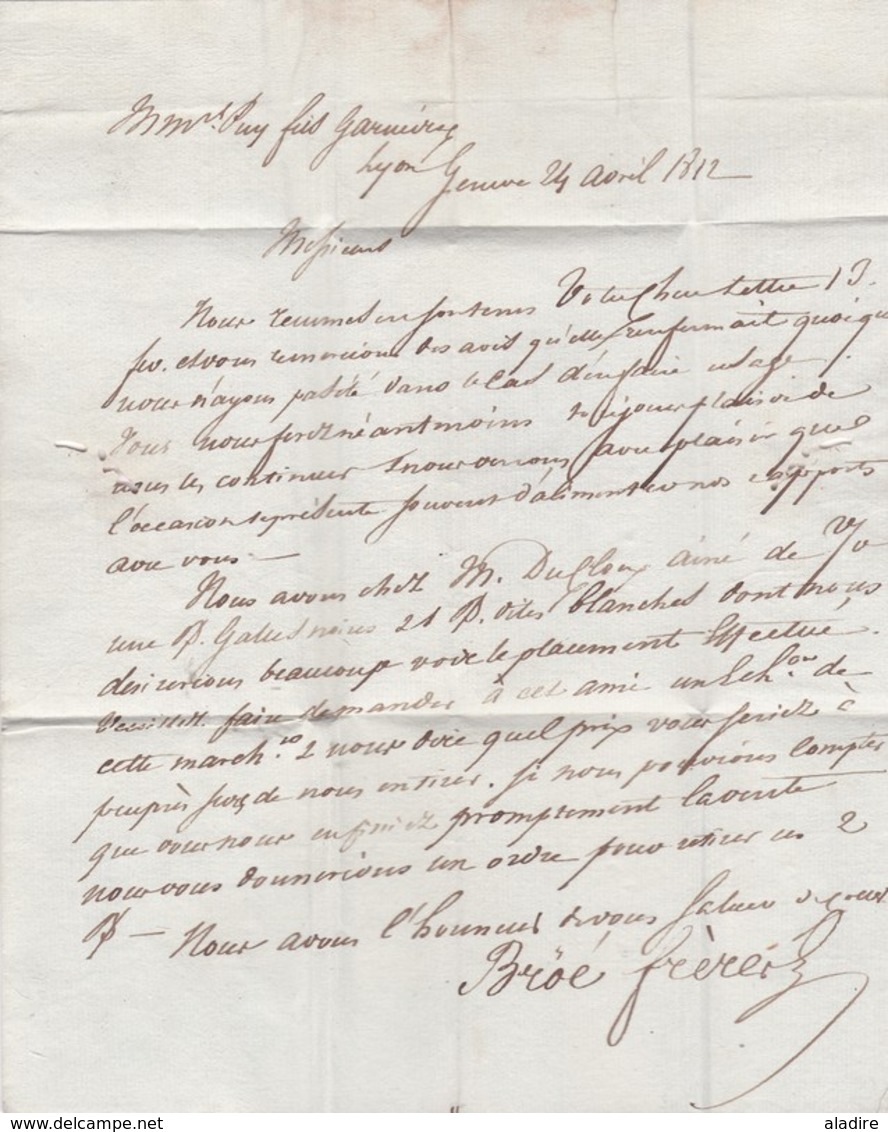 Mmrs. Puy fils Garnier
Lyon Geneve 24 avril 1812
Messieurs
Nous sommes en son tems Votre Chere Lettre 13
fev. et vous remercions des avis qu'elle renfermait quoique
nous n'ayons pas été dans le cas d'en faire usage
Vous nous ferez néantmoins toujours plaisir de
nous les continuer & nous verrons avec plaisir que
l'occasion se présente souvent d'alimenter nos rapports
avec vous —
Nous avons chez M. DuCloux ainé de V/v
une B. Galles noires & 1 B. dites blanches dont nous
desirerions beaucoup voir le placement effectué.
Veuillez faire demander à cet ami un Echon. de
cette march.se & nous dire quel prix vous seriez à
peuprès sûrs de nous en tirer. Si nous pouvions compter
que vous nous en fissiez promptement la vente
nous vous donnerions un ordre pour retirer ces 2
B —
Nous avons l'honneur de vous saluer de coeur
Bröé frères
www.delcampe.net
aladire